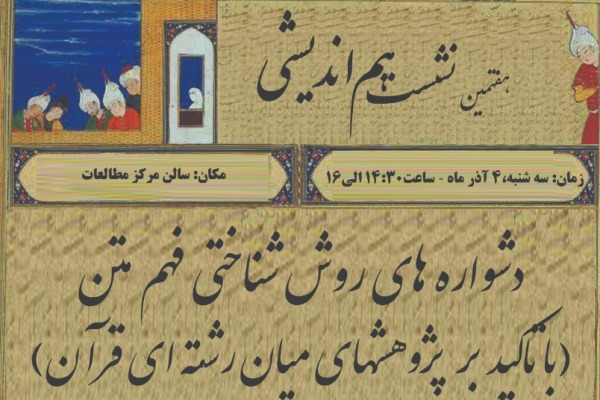 هفتمین نشست هم اندیشی
زمان: سه شنبه، ۴ آذر ماه - ساعت ۱۴:۳۰ الی ۱۶
مکان: سالن مرکز مطالعات
دشواره های روش شناختی فهم متن
(با تأکید بر پژوهشهای میان رشته ای قرآن)